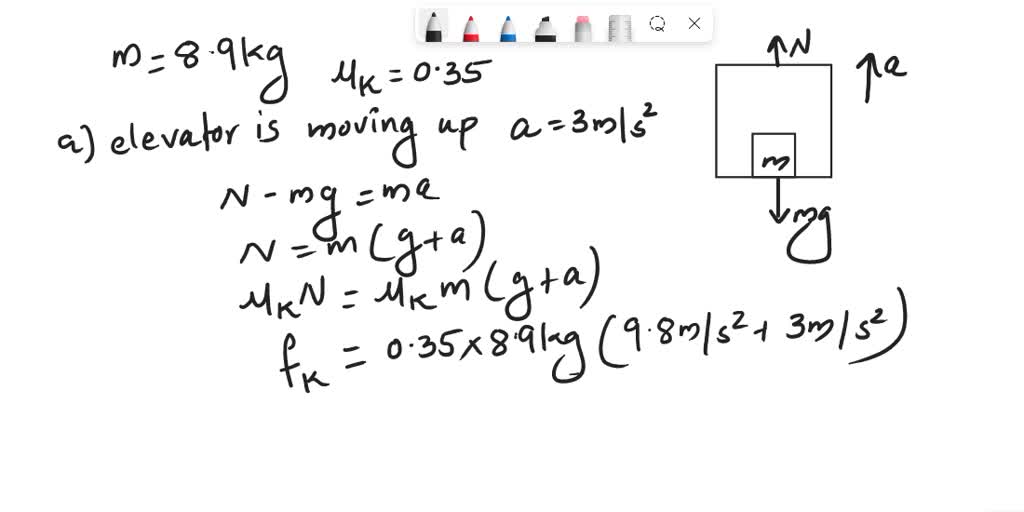 m = 8.9kg
μK = 0.35
a) elevator is moving up a = 3m/s²
N - mg = ma
N = m(g+a)
μKN = μKm(g+a)
fK = 0.35×8.9kg(9.8m/s²+3m/s²)
N
a
m
mg